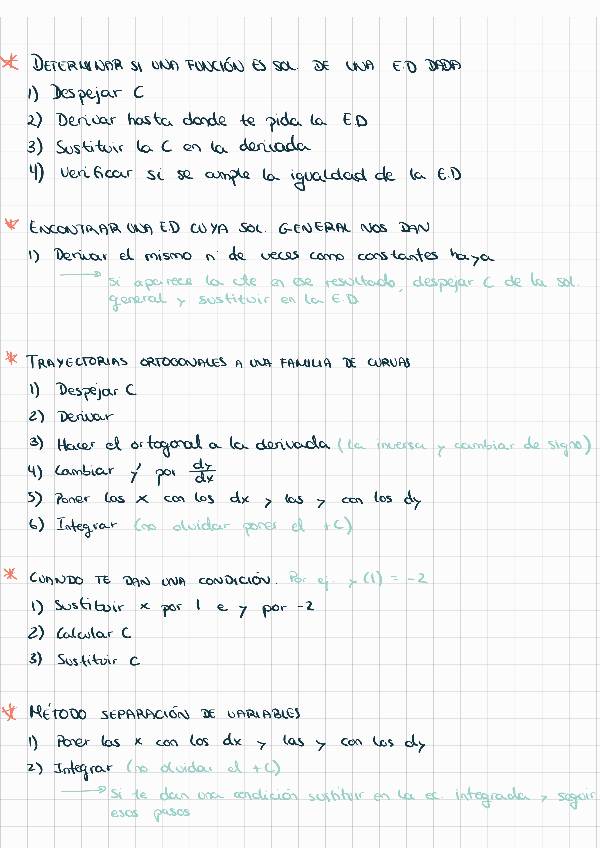 * DETERMINAR SI UNA FUNCIÓN ES SOL. DE UNA E.D DADA
1) Despejar C
2) Derivar hasta donde te pida la E.D
3) Sustituir la C en la derivada
4) Verificar si se cumple la igualdad de la E.D
* ENCONTRAR UNA ED CUYA SOL. GENERAL NOS DAN
1) Derivar el mismo nº de veces como constantes haya
→ si aparece la cte en ese resultado, despejar C de la sol.
general y sustituir en la E.D
* TRAYECTORIAS ORTOGONALES A UNA FAMILIA DE CURVAS
1) Despejar C
2) Derivar
3) Hacer el ortogonal a la derivada (la inversa y cambiar de signo)
4) Cambiar y' por dy/dx
5) Poner las x con los dx y las y con los dy
6) Integrar (no olvidar poner el +C)
* CUANDO TE DAN UNA CONDICIÓN. Por ej. y(1) = -2
1) Sustituir x por 1 e y por -2
2) Calcular C
3) Sustituir C
* MÉTODO SEPARACIÓN DE VARIABLES
1) Poner las x con los dx y las y con los dy
2) Integrar (no olvidar el +C)
→ Si te dan una condición sustituir en la ec. integrada y seguir
esos pasos